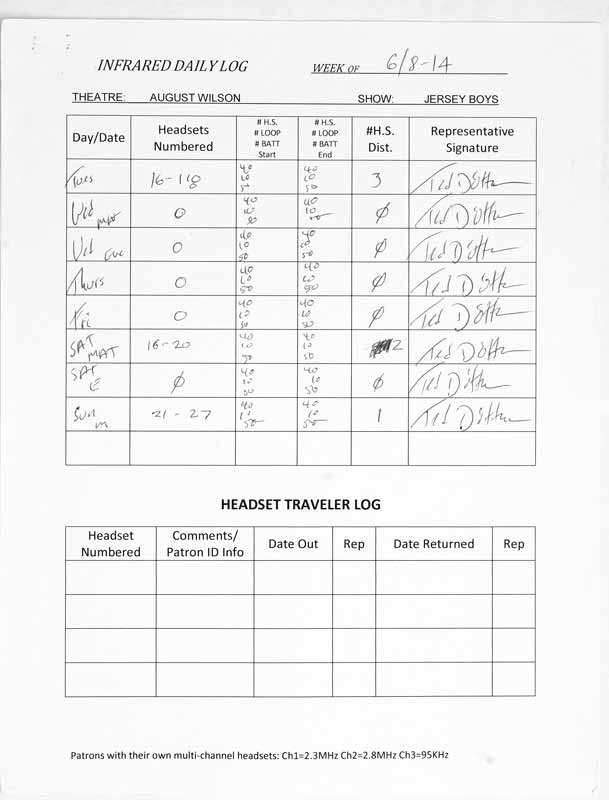 INFRARED DAILY LOG WEEK OF 6/8-14
THEATRE: AUGUST WILSON SHOW: JERSEY BOYS
Day/Date Headsets Numbered # H.S. # LOOP # BATT Start # H.S. # LOOP # BATT End #H.S. Dist. Representative Signature
Tues 16-118 40 10 50 40 10 50 3
Wed mat 0 40 10 50 40 10 50 Ø
Wed eve 0 40 10 50 40 10 50 Ø
Thurs 0 40 10 50 40 10 50 Ø
Fri 0 40 10 50 40 10 50 Ø
SAT MAT 16-20 40 10 50 40 10 50 2
SAT E Ø 40 10 50 40 10 50 Ø
Sun m 21-27 40 10 50 40 10 50 1
HEADSET TRAVELER LOG
Headset Numbered Comments/ Patron ID Info Date Out Rep Date Returned Rep
Patrons with their own multi-channel headsets: Ch1=2.3MHz Ch2=2.8MHz Ch3=95KHz